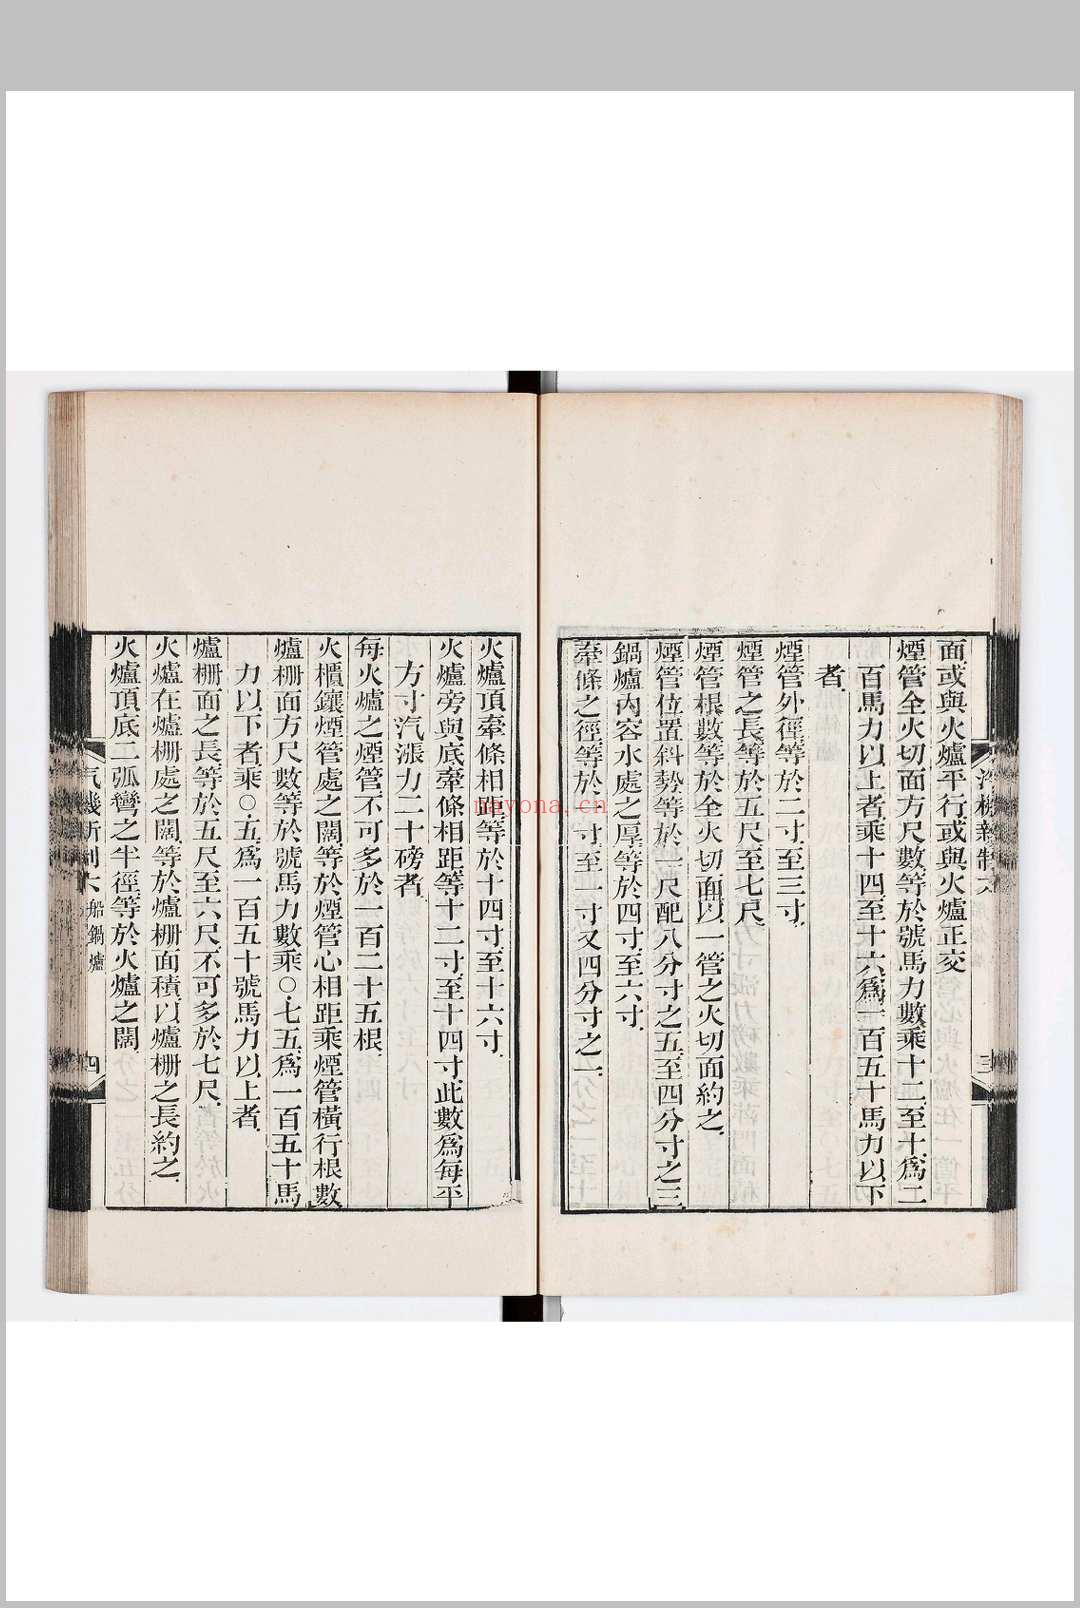 面、或與火爐平行、或與火爐正交
煙管全火切面方尺數、等於號馬力數乘十二至十、爲二
百馬力以上者、乘十四至十六、爲一百五十馬力以下
者、
煙管外徑、等於二寸至三寸、
煙管之長、等於五尺至七尺、
煙管根數、等於全火切面、以一管之火切面約之、
煙管位置斜勢、等於一尺配八分寸之五至四分寸之三
鍋爐內容水處之厚、等於四寸至六寸、
牽條之徑、等於一寸至一寸又四分寸之一、
火爐頂牽條相距、等於十四寸至十六寸、
火爐旁與底牽條相距等十二寸至十四寸、此數爲每平
方寸汽漲力二十磅者、
每火爐之煙管、不可多於一百二十五根、
火櫃鑲煙管處之闊、等於煙管心相距乘煙管橫行根數
爐栅面方尺數、等於號馬力數乘○·七五、爲一百五十馬
力以下者、乘○·五、爲一百五十號馬力以上者、
爐栅面之長、等於五尺至六尺、不可多於七尺、
火爐在爐栅處之闊、等於爐栅面積、以爐栅之長約之、
火爐頂底二弧彎之半徑、等於火爐之闊、
船鍋爐
四
nayona.cn